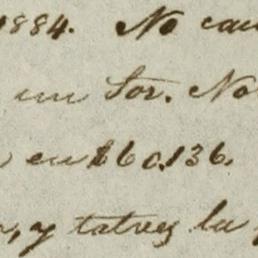 1884. No cau
un Sor. No
en 160.136.
y tatrez la